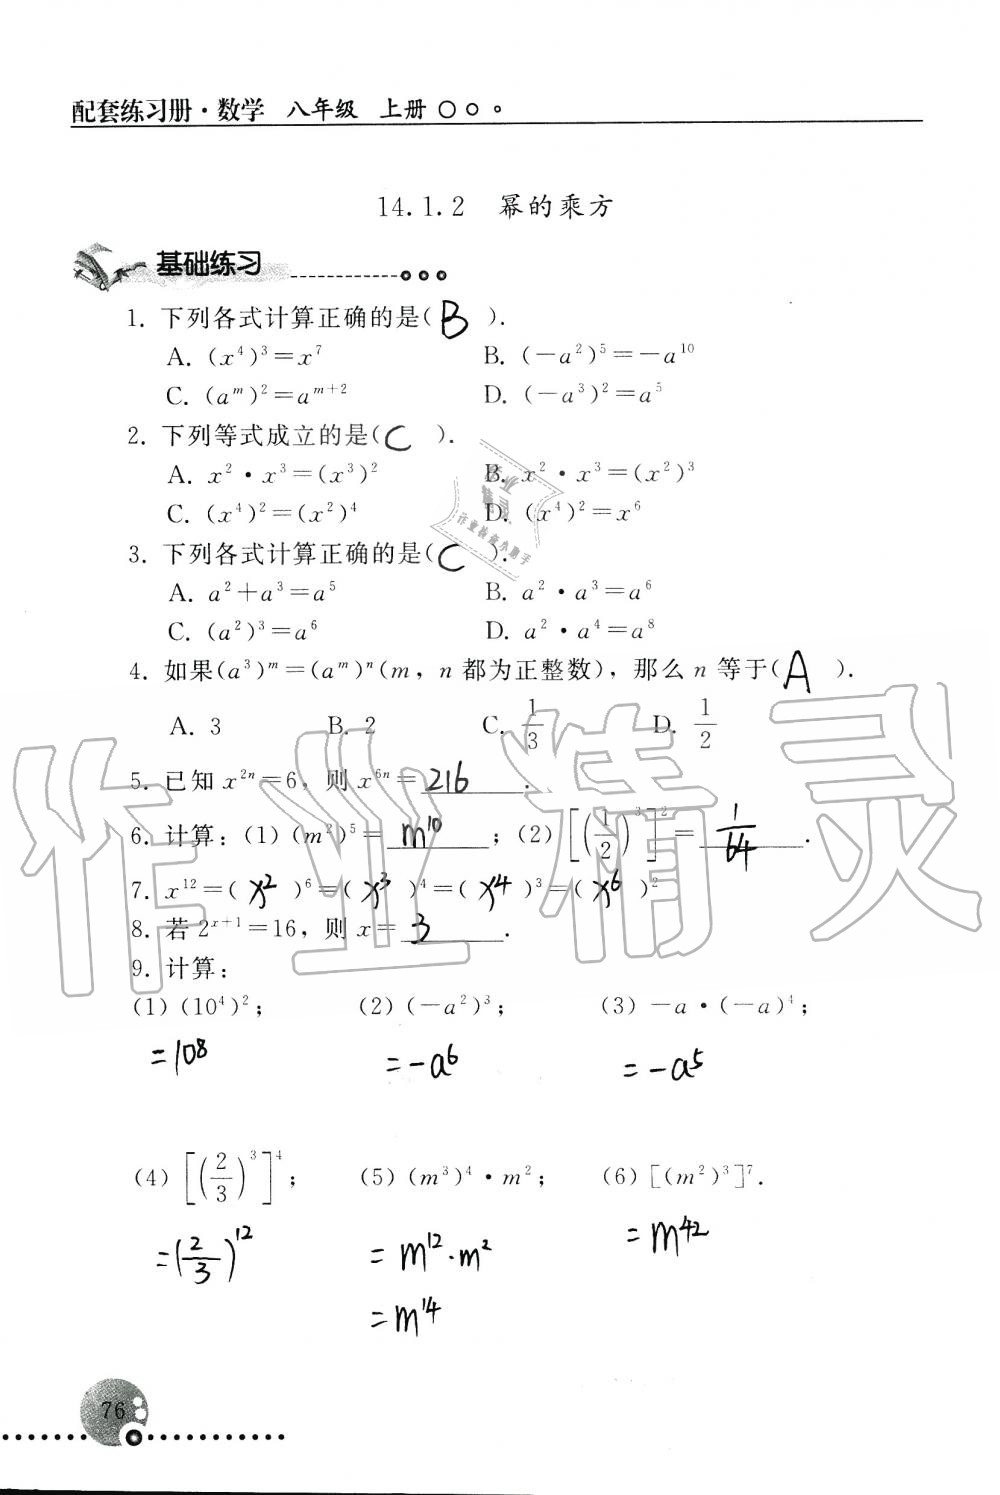 配套练习册·数学 八年级 上册
14.1.2 幂的乘方
基础练习
1. 下列各式计算正确的是( B ).
A. (x⁴)³=x⁷ B. (-a²)⁵=-a¹⁰
C. (aᵐ)²=aᵐ⁺² D. (-a³)²=a⁵
2. 下列等式成立的是( C ).
A. x²·x³=(x³)² B. x²·x³=(x²)³
C. (x⁴)²=(x²)⁴ D. (x⁴)²=x⁶
3. 下列各式计算正确的是( C ).
A. a²+a³=a⁵ B. a²·a³=a⁶
C. (a²)³=a⁶ D. a²·a⁴=a⁸
4. 如果(a³)ᵐ=(aᵐ)ⁿ(m,n都为正整数),那么n等于( A ).
A. 3 B. 2 C. 1/3 D. 1/2
5. 已知x²ⁿ=6,则x⁶ⁿ= 216 .
6. 计算:(1) (m²)⁵= m¹⁰ ;(2) [(1/2)³]²= 1/64 .
7. x¹²=( x² )⁶=( x³ )⁴=( x⁴ )³=( x⁶ )²
8. 若2ˣ⁺¹=16,则x= 3 .
9. 计算:
(1) (10⁴)²; (2) (-a²)³; (3) -a·(-a)⁴;
=10⁸ =-a⁶ =-a⁵
(4) [(2/3)³]⁴; (5) (m³)⁴·m²; (6) [(m²)³]⁷.
=(2/3)¹² =m¹²·m² =m⁴²
=m¹⁴
76
作业精灵